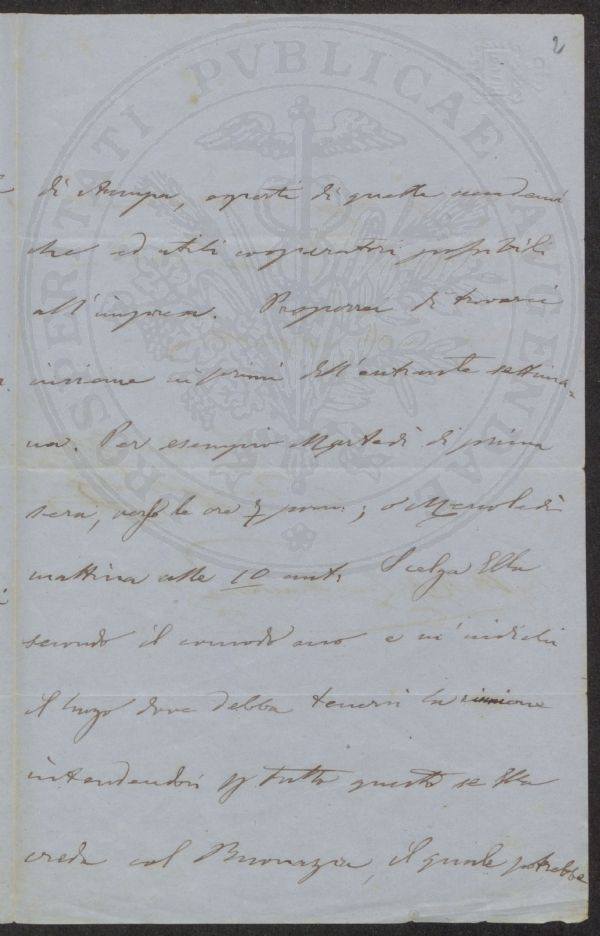 2
di stampa, oparti di quelle
che ed utili cooperatori possibili
all'impresa. Proporrei di trovarci
insieme ai primi dell'entrante settima=
na. Per esempio Martedì di prima
sera, verso le ore 7 pom.; o Mercoledì
mattina alle 10 ant. Scelga Ella
secondo il comodo suo e m'indichi
il luogo dove debba tenersi la riunione
intendendosi p tutto questo se Ella
creda col il quale potrebbe
PROSPERITATI PVBLICAE AVGENDAE